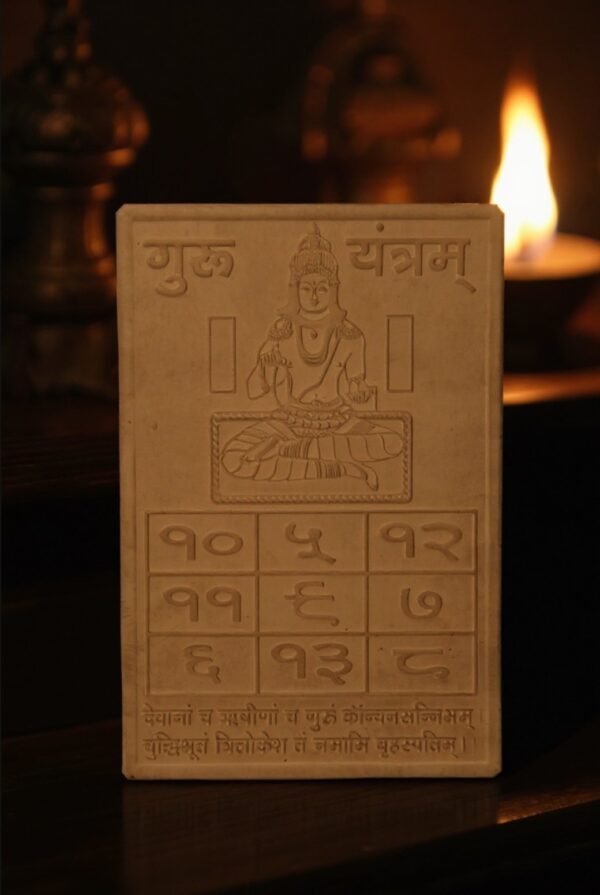 गुरू यंत्रम्
१० ५ १२
११ ९ ७
६ १३ ८
देवानां च ऋषीणां च गुरुं काॅन्चनसन्निभम्
बुद्धिभूतं त्रिलोकेश तं नमामि बृहस्पतिम्।